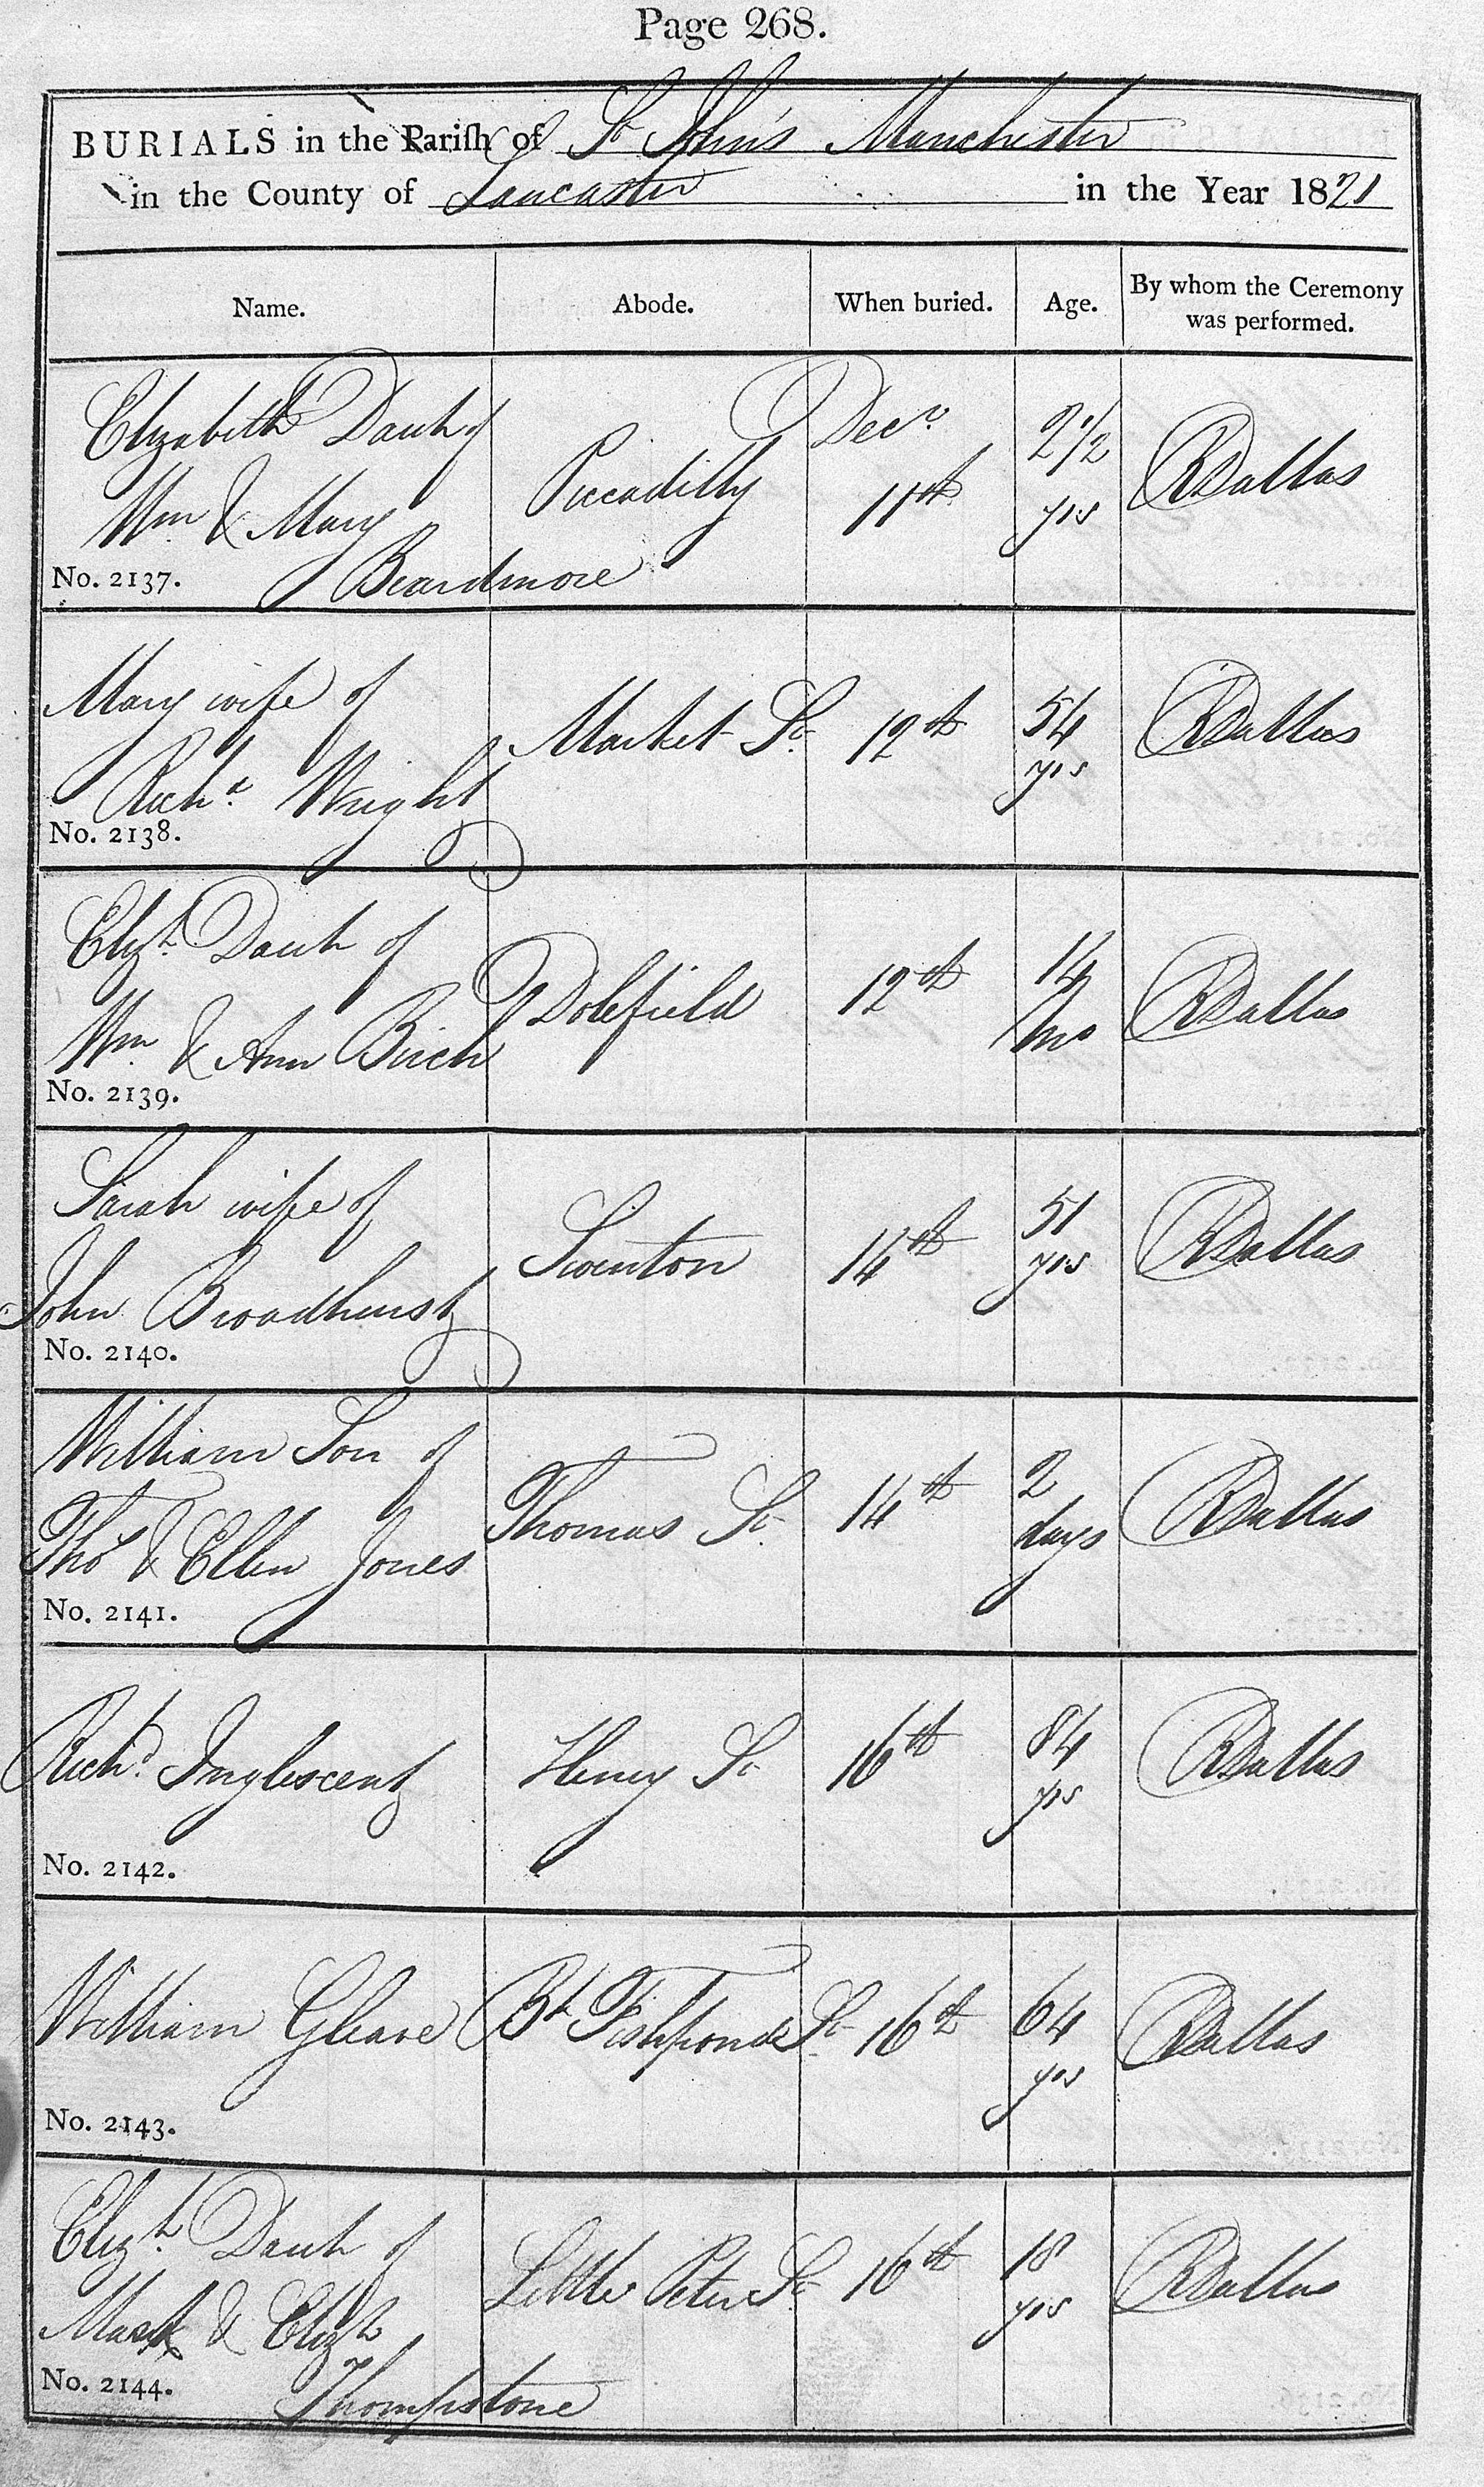 Page 268.
BURIALS in the Parish of St John's Manchester
in the County of Lancaster in the Year 1821
Name. Abode. When buried. Age. By whom the Ceremony was performed.
Elizabeth Dauh of
Wm & Mary
Beardmore
No. 2137.
Piccadilly
Decr
11th
2 1/2
yrs
RDallas
Mary wife of
Richd Wright
No. 2138.
Market St
12th
54
yrs
RDallas
Elizh Dauh of
Wm & Ann Birch
No. 2139.
Dolefield
12th
14
Mo
RDallas
Sarah wife of
John Broadhurst
No. 2140.
Swinton
14th
51
yrs
RDallas
William Son of
Thos & Ellen Jones
No. 2141.
Thomas St
14th
2
days
RDallas
Richd Inglescent
No. 2142.
Henry St
16th
84
yrs
RDallas
William Gleave
No. 2143.
Bk Fishponds St
16th
64
yrs
RDallas
Elizh Dauh of
Mark & Elizh
Thompstone
No. 2144.
Little Peter St
16th
18
yrs
RDallas